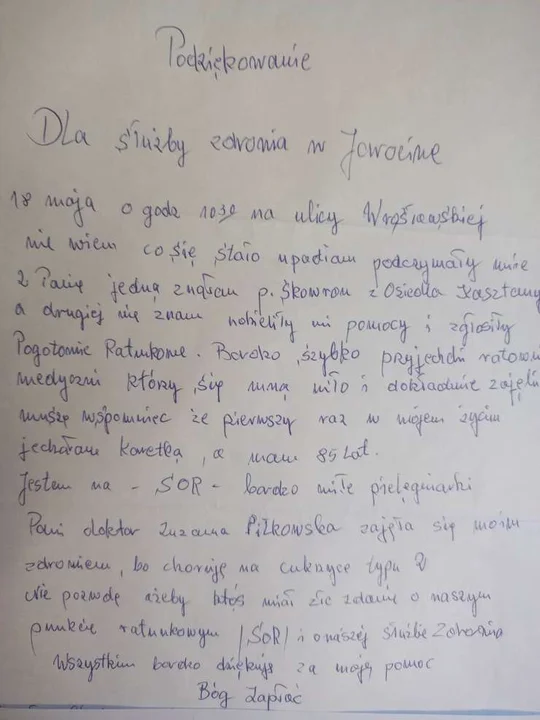 Podziękowanie
Dla służby zdrowia w Jarocinie
18 maja o godz 10³⁰ na ulicy Wrocławskiej
nie wiem co się stało upadłam podczymały mnie
2 Panie jedną znałam p. Skowron z Osiedla Kasztany
a drugiej nie znam udzieliły mi pomocy i zgłosiły
Pogotowie Ratunkowe. Bardzo szybko przyjechali ratowni
medyczni którzy się mną miło i dokładnie zajęli
muszę wspomnieć że pierwszy raz w mojem życiu
jechałam karetką, a mam 85 lat.
Jestem na - SOR - bardzo miłe pielęgniarki
Pani doktor Zuzanna Pilkowska zajęła się moim
zdrowiem, bo choruję na cukrzyce typu 2
Nie pozwolę ażeby ktoś miał złe zdanie o naszym
punkcie ratunkowym /SOR/ i o naszej służbie Zdrowia
Wszystkim bardzo dziękuję za moją pomoc
Bóg Zapłać